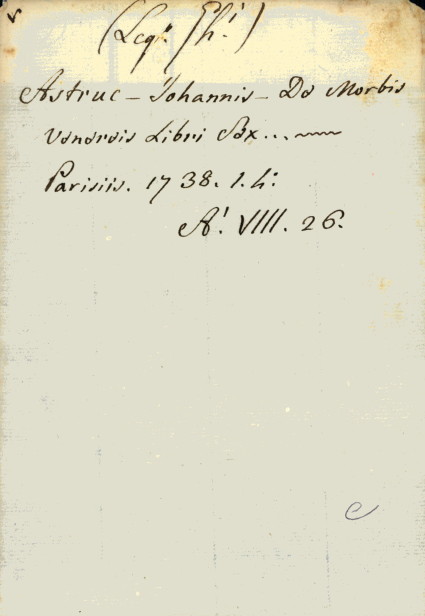 Astruc - Johannis - De Morbis
Venereis Libri Sex...
Parisiis. 1738. 1. 4:
A! VIII. 26.
e